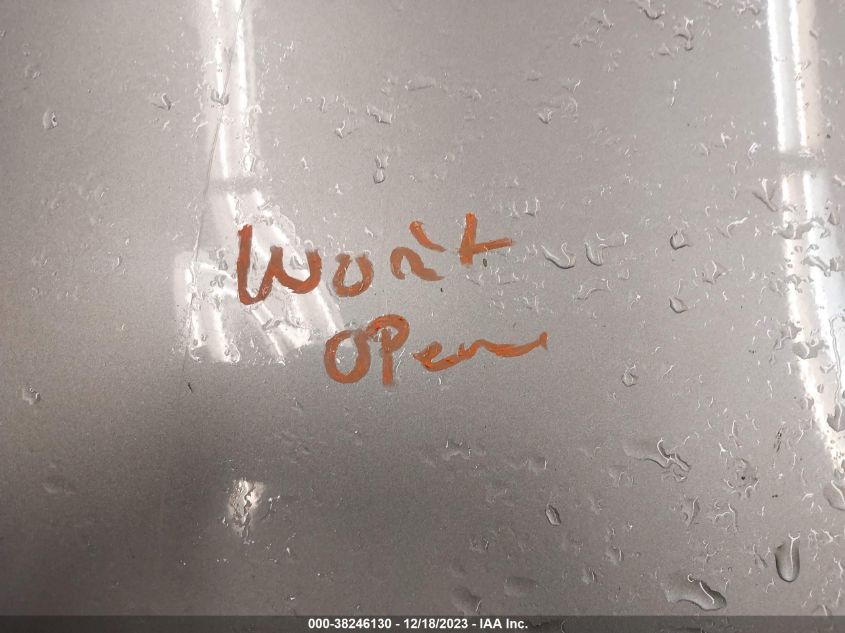 Won't
open
000-38246130 - 12/18/2023 - IAA Inc.